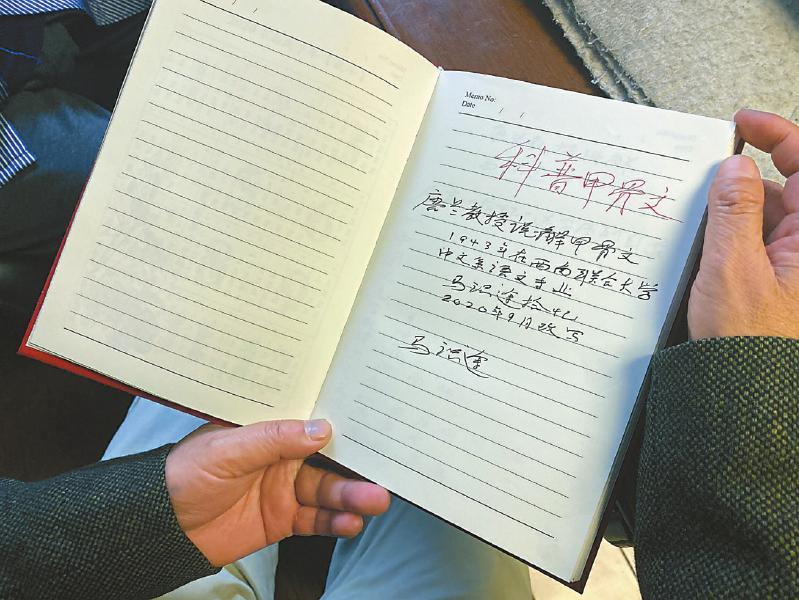 Memo No:
Date / /
科普甲骨文
唐兰教授说解甲骨文
1943年在西南联合大学
中文系语文专业
马识途拾忆
2020年9月改写
马识途